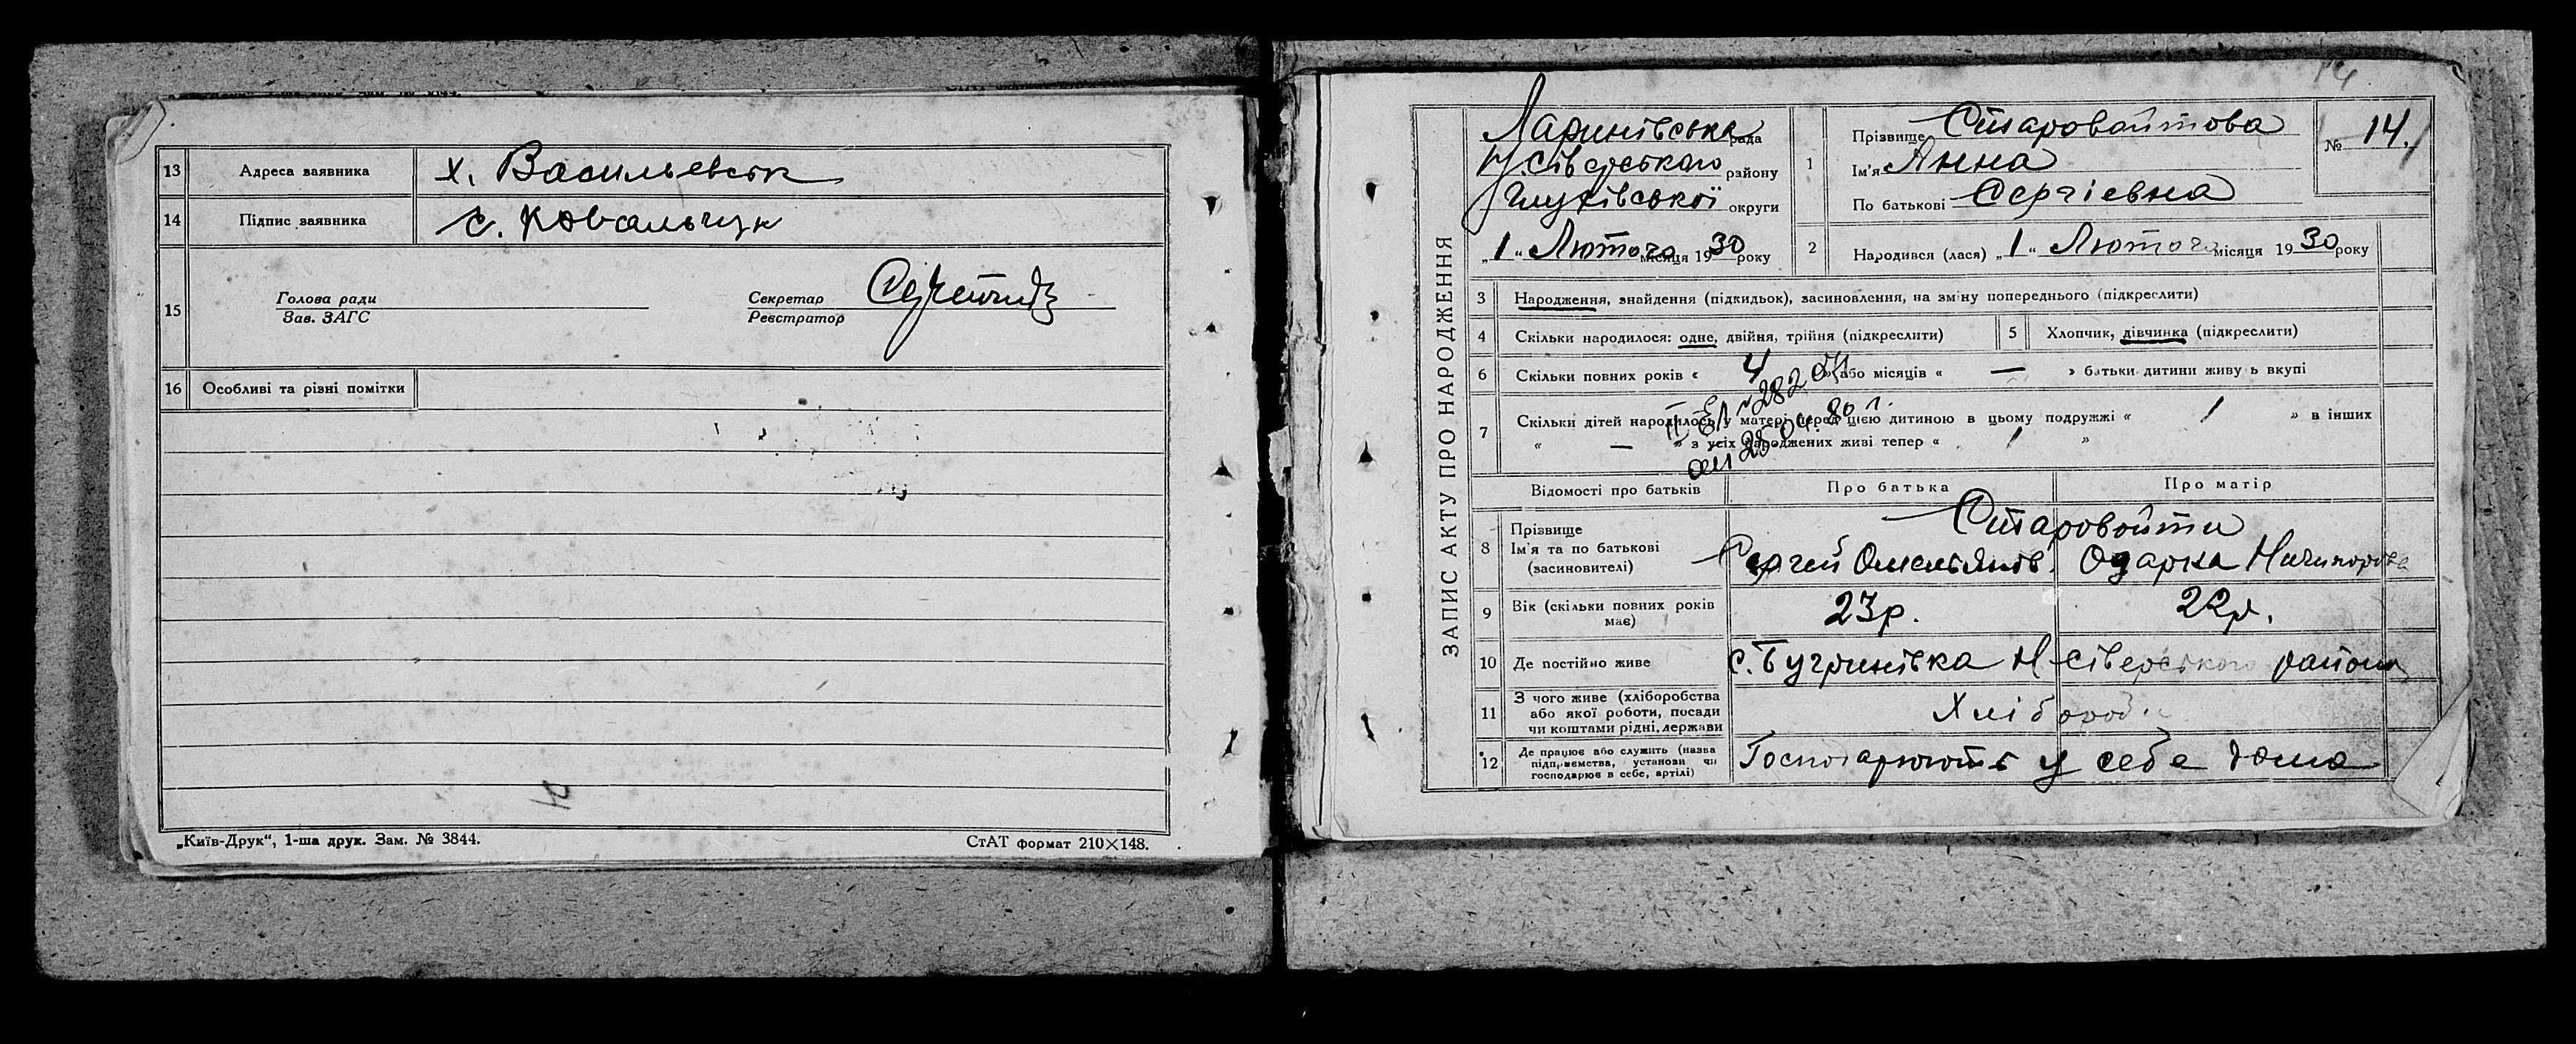 13 Адреса заявника х. Васильевськ
14 Підпис заявника С. Ковальчук
15 Голова ради
Зав. ЗАГС
Секретар
Реєстратор
16 Особливі та різні помітки
„Київ-Друк“, 1-ша друк. Зам. № 3844.
СтАТ формат 210×148.
14
ЗАПИС АКТУ ПРО НАРОДЖЕННЯ
Ларинівська рада
Н. Сіверського району
Глухівської округи
„1“ Лютого місяця 1930 року
1 Прізвище Старовойтова
Ім'я Анна
По батькові Сергіевна
№ 14.
2 Народився (лася) „1“ Лютого місяця 1930 року
3 Народження, знайдення (підкидьок), засиновлення, на зміну попереднього (підкреслити)
4 Скільки народилося: одне, двійня, трійня (підкреслити)
5 Хлопчик, дівчинка (підкреслити)
6 Скільки повних років « 4 » або місяців « — » батьки дитини живуть вкупі
7 Скільки дітей народилось у матері перед цією дитиною в цьому подружжі « 1 » в інших
« — » з усіх народжених живі тепер « 1 »
Відомості про батьків Про батька Про матір
8 Прізвище
Ім'я та по батькові
(засиновителі)
Старовойти
Сергей Омельянів. Одарка Ничипорівна
9 Вік (скільки повних років
має)
23р. 22р.
10 Де постійно живе с. Бугринівка Н-Сіверського району
11 З чого живе (хліборобства
або якої роботи, посади
чи коштами рідні, держави
Хлібороби
12 Де працює або служить (назва
підприємства, установи чи
господарює в себе, артілі)
Господарюють у себе дома